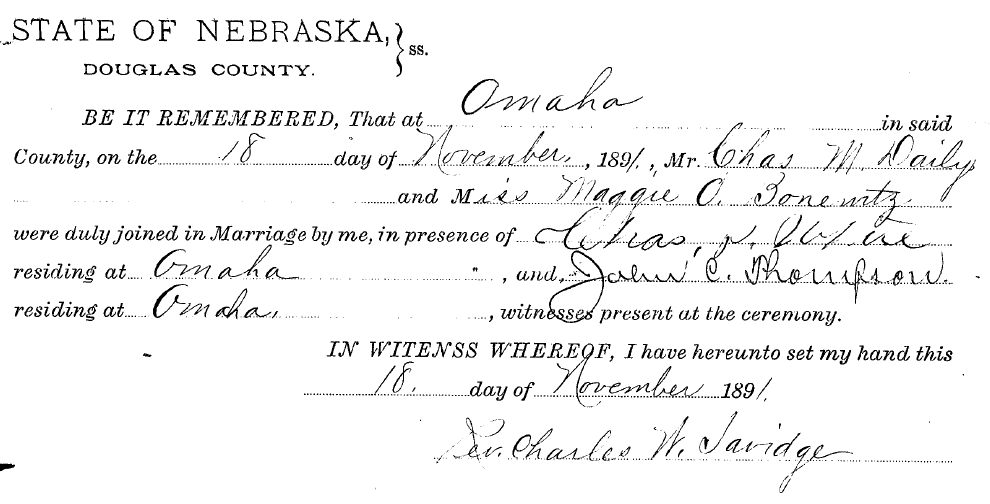 STATE OF NEBRASKA, } ss.
DOUGLAS COUNTY.
BE IT REMEMBERED, That at Omaha in said
County, on the 18 day of November, 1891, Mr. Chas M. Daily
and Miss Maggie O. Bonewitz
were duly joined in Marriage by me, in presence of Chas,
residing at Omaha " , and, John C. Thompson.
residing at Omaha, , witnesses present at the ceremony.
IN WITENSS WHEREOF, I have hereunto set my hand this
18. day of November 1891.
Rev. Charles W. Savidge